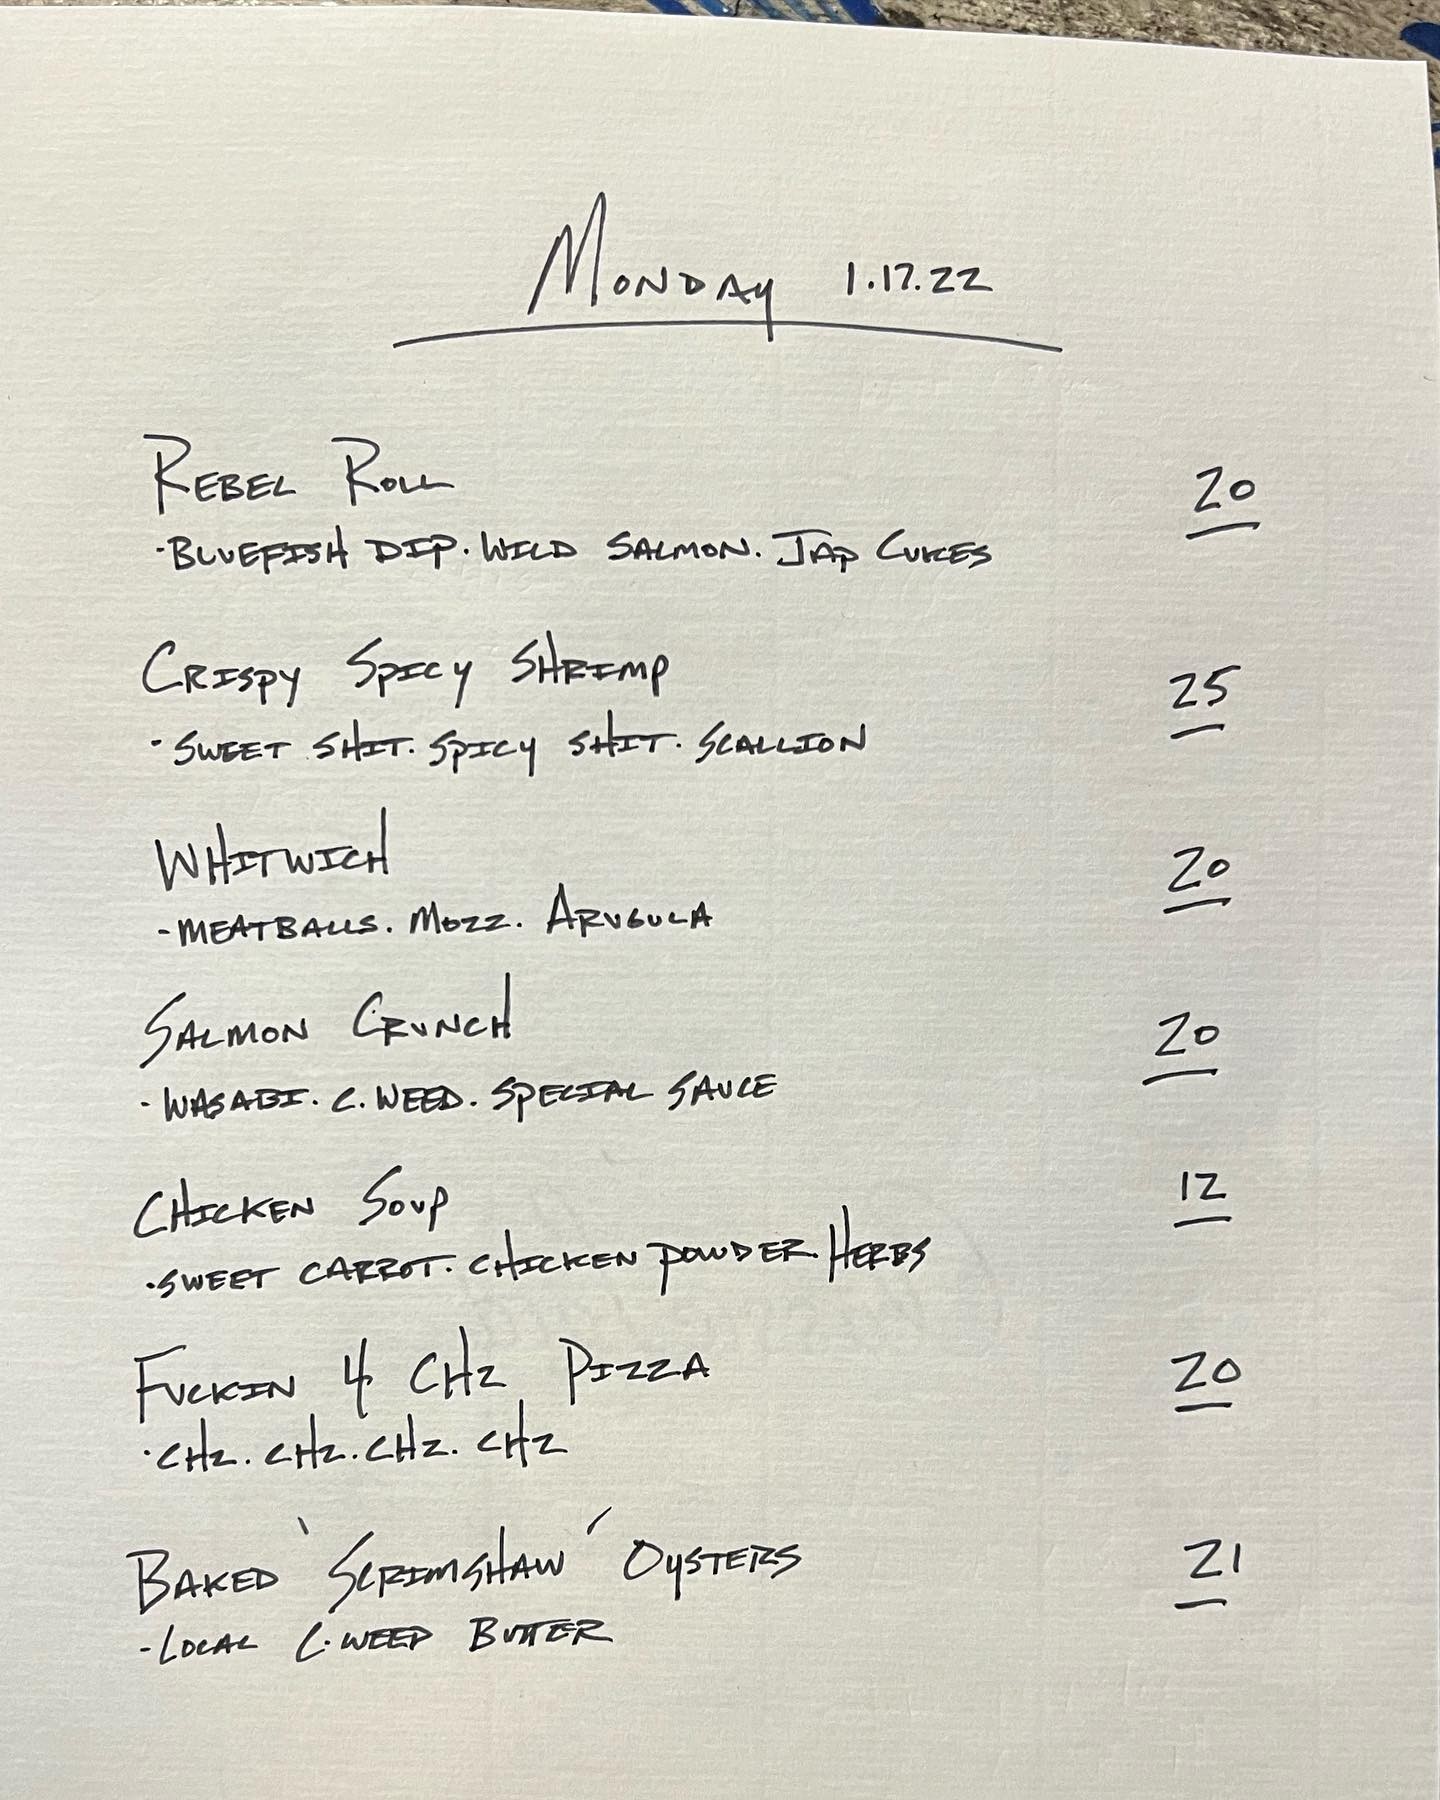 Monday 1.17.22
Rebel Roll 20
·Bluefish Dip. Wild Salmon. Jap Cukes
Crispy Spicy Shrimp 25
·Sweet Shit. Spicy Shit. Scallion
Whitwich 20
-Meatballs. Mozz. Arugula
Salmon Crunch 20
·Wasabi. C.Weed. Special Sauce
Chicken Soup 12
·Sweet Carrot. Chicken Powder. Herbs
Fuckin 4 Chz Pizza 20
·Chz. Chz. Chz. Chz
Baked 'Scrimshaw' Oysters 21
-Local C.Weed Butter